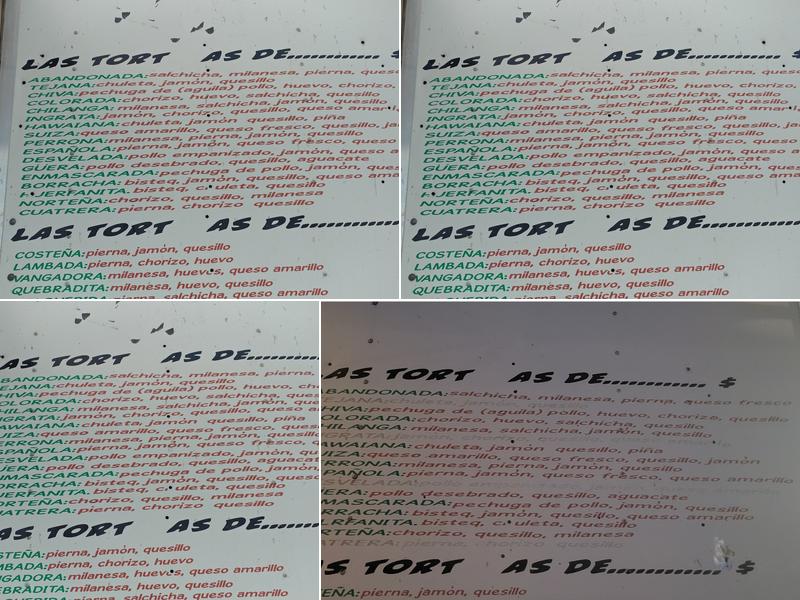 LAS TORT AS DE............ $
ABANDONADA: salchicha, milanesa, pierna, ques
TEJANA: chuleta, jamón, quesillo
CHIVA: pechuga de (aguila) pollo, huevo, chorizo,
COLORADA: chorizo, huevo, salchicha, quesillo
CHILANGA: milanesa, salchicha, jamón, quesillo
INGRATA: jamón, chorizo, quesillo, queso amari
HAWAIANA: chuleta, jamón quesillo, piña
SUIZA: queso amarillo, queso fresco, quesillo, ja
PERRONA: milanesa, pierna, jamón, quesillo
ESPAÑOLA: pierna, jamón, queso fresco, queso a
DESVELADA: pollo empanizado, jamón, queso a
GÜERA: pollo desebrado, quesillo, aguacate
ENMASCARADA: pechuga de pollo, jamón, ques
BORRACHA: bisteq, jamón, quesillo, queso amarillo
JERFANITA: bisteq, c uleta, quesillo
NORTEÑA: chorizo, quesillo, milanesa
CUATRERA: pierna, chorizo quesillo
LAS TORT AS DE............
COSTEÑA: pierna, jamón, quesillo
LAMBADA: pierna, chorizo, huevo
VANGADORA: milanesa, huevos, queso amarillo
QUEBRADITA: milanesa, huevo, quesillo
pierna, salchicha, queso amarillo
LAS TORT AS DE............ $
ABANDONADA: salchicha, milanesa, pierna, ques
TEJANA: chuleta, jamón, quesillo
CHIVA: pechuga de (aguila) pollo, huevo, chorizo,
COLORADA: chorizo, huevo, salchicha, quesillo
CHILANGA: milanesa, salchicha, jamón, quesillo
INGRATA: jamón, chorizo, quesillo, queso amar
HAWAIANA: chuleta, jamón quesillo, piña
SUIZA: queso amarillo, queso fresco, quesillo, ja
PERRONA: milanesa, pierna, jamón, quesillo
ESPAÑOLA: pierna, jamón, queso fresco, queso
DESVELADA: pollo empanizado, jamón, queso a
GÜERA: pollo desebrado, quesillo, aguacate
ENMASCARADA: pechuga de pollo, jamón, ques
BORRACHA: bisteq, jamón, quesillo, queso amarillo
JERFANITA: bisteq, c uleta, quesillo
NORTEÑA: chorizo, quesillo, milanesa
CUATRERA: pierna, chorizo quesillo
LAS TORT AS DE............
COSTEÑA: pierna, jamón, quesillo
LAMBADA: pierna, chorizo, huevo
VANGADORA: milanesa, huevos, queso amarillo
QUEBRADITA: milanesa, huevo, quesillo
pierna, salchicha, queso amarillo
AS TORT AS DE............
BANDONADA: salchicha, milanesa, pierna,
EJANA: chuleta, jamón, quesillo
HIVA: pechuga de (aguila) pollo, huevo, cho
OLORADA: chorizo, huevo, salchicha, quesillo
HILANGA: milanesa, salchicha, jamón,
NGRATA: jamón, chorizo, quesillo, queso a
AWAIANA: chuleta, jamón quesillo, piña
UIZA: queso amarillo, queso fresco, quesi
ERRONA: milanesa, pierna, jamón, quesillo
SPAÑOLA: pierna, jamón, queso fresco, q
ESVELADA: pollo empanizado, jamón,
ÜERA: pollo desebrado, quesillo, aguacat
NMASCARADA: pechuga de pollo, jamón
ORRACHA: bisteq, jamón, quesillo, queso am
UERFANITA: bisteq, c uleta, quesillo
ORTEÑA: chorizo, quesillo, milanesa
UATRERA: pierna, chorizo quesillo
AS TORT AS DE............
STEÑA: pierna, jamón, quesillo
MBADA: pierna, chorizo, huevo
NGADORA: milanesa, huevos, queso amarillo
EBRADITA: milanesa, huevo, quesillo
pierna, salchicha, queso amarillo
AS TORT AS DE............ $
BANDONADA: salchicha, milanesa, pierna, queso fresco
EJANA:
HIVA: pechuga de (aguila) pollo, huevo, chorizo, quesillo
OLORADA: chorizo, huevo, salchicha, quesillo
HILANGA: milanesa, salchicha, jamón, quesillo
NGRATA: jamón, chorizo, quesillo, queso
AWAIANA: chuleta, jamón quesillo, piña
UIZA: queso amarillo, queso fresco, quesillo, jamón
RRONA: milanesa, pierna, jamón, quesillo
PAÑOLA: pierna, jamón, queso fresco, queso amarillo
SVELADA: pollo
ERA: pollo desebrado, quesillo, aguacate
MASCARADA: pechuga de pollo, jamón, quesillo
RRACHA: bisteq, jamón, quesillo, queso amarillo
RFANITA. bisteq, c uleta, quesillo
RTEÑA: chorizo, quesillo, milanesa
TRERA: pierna, chorizo quesillo
S TORT AS DE............ $
EÑA: pierna, jamón, quesillo